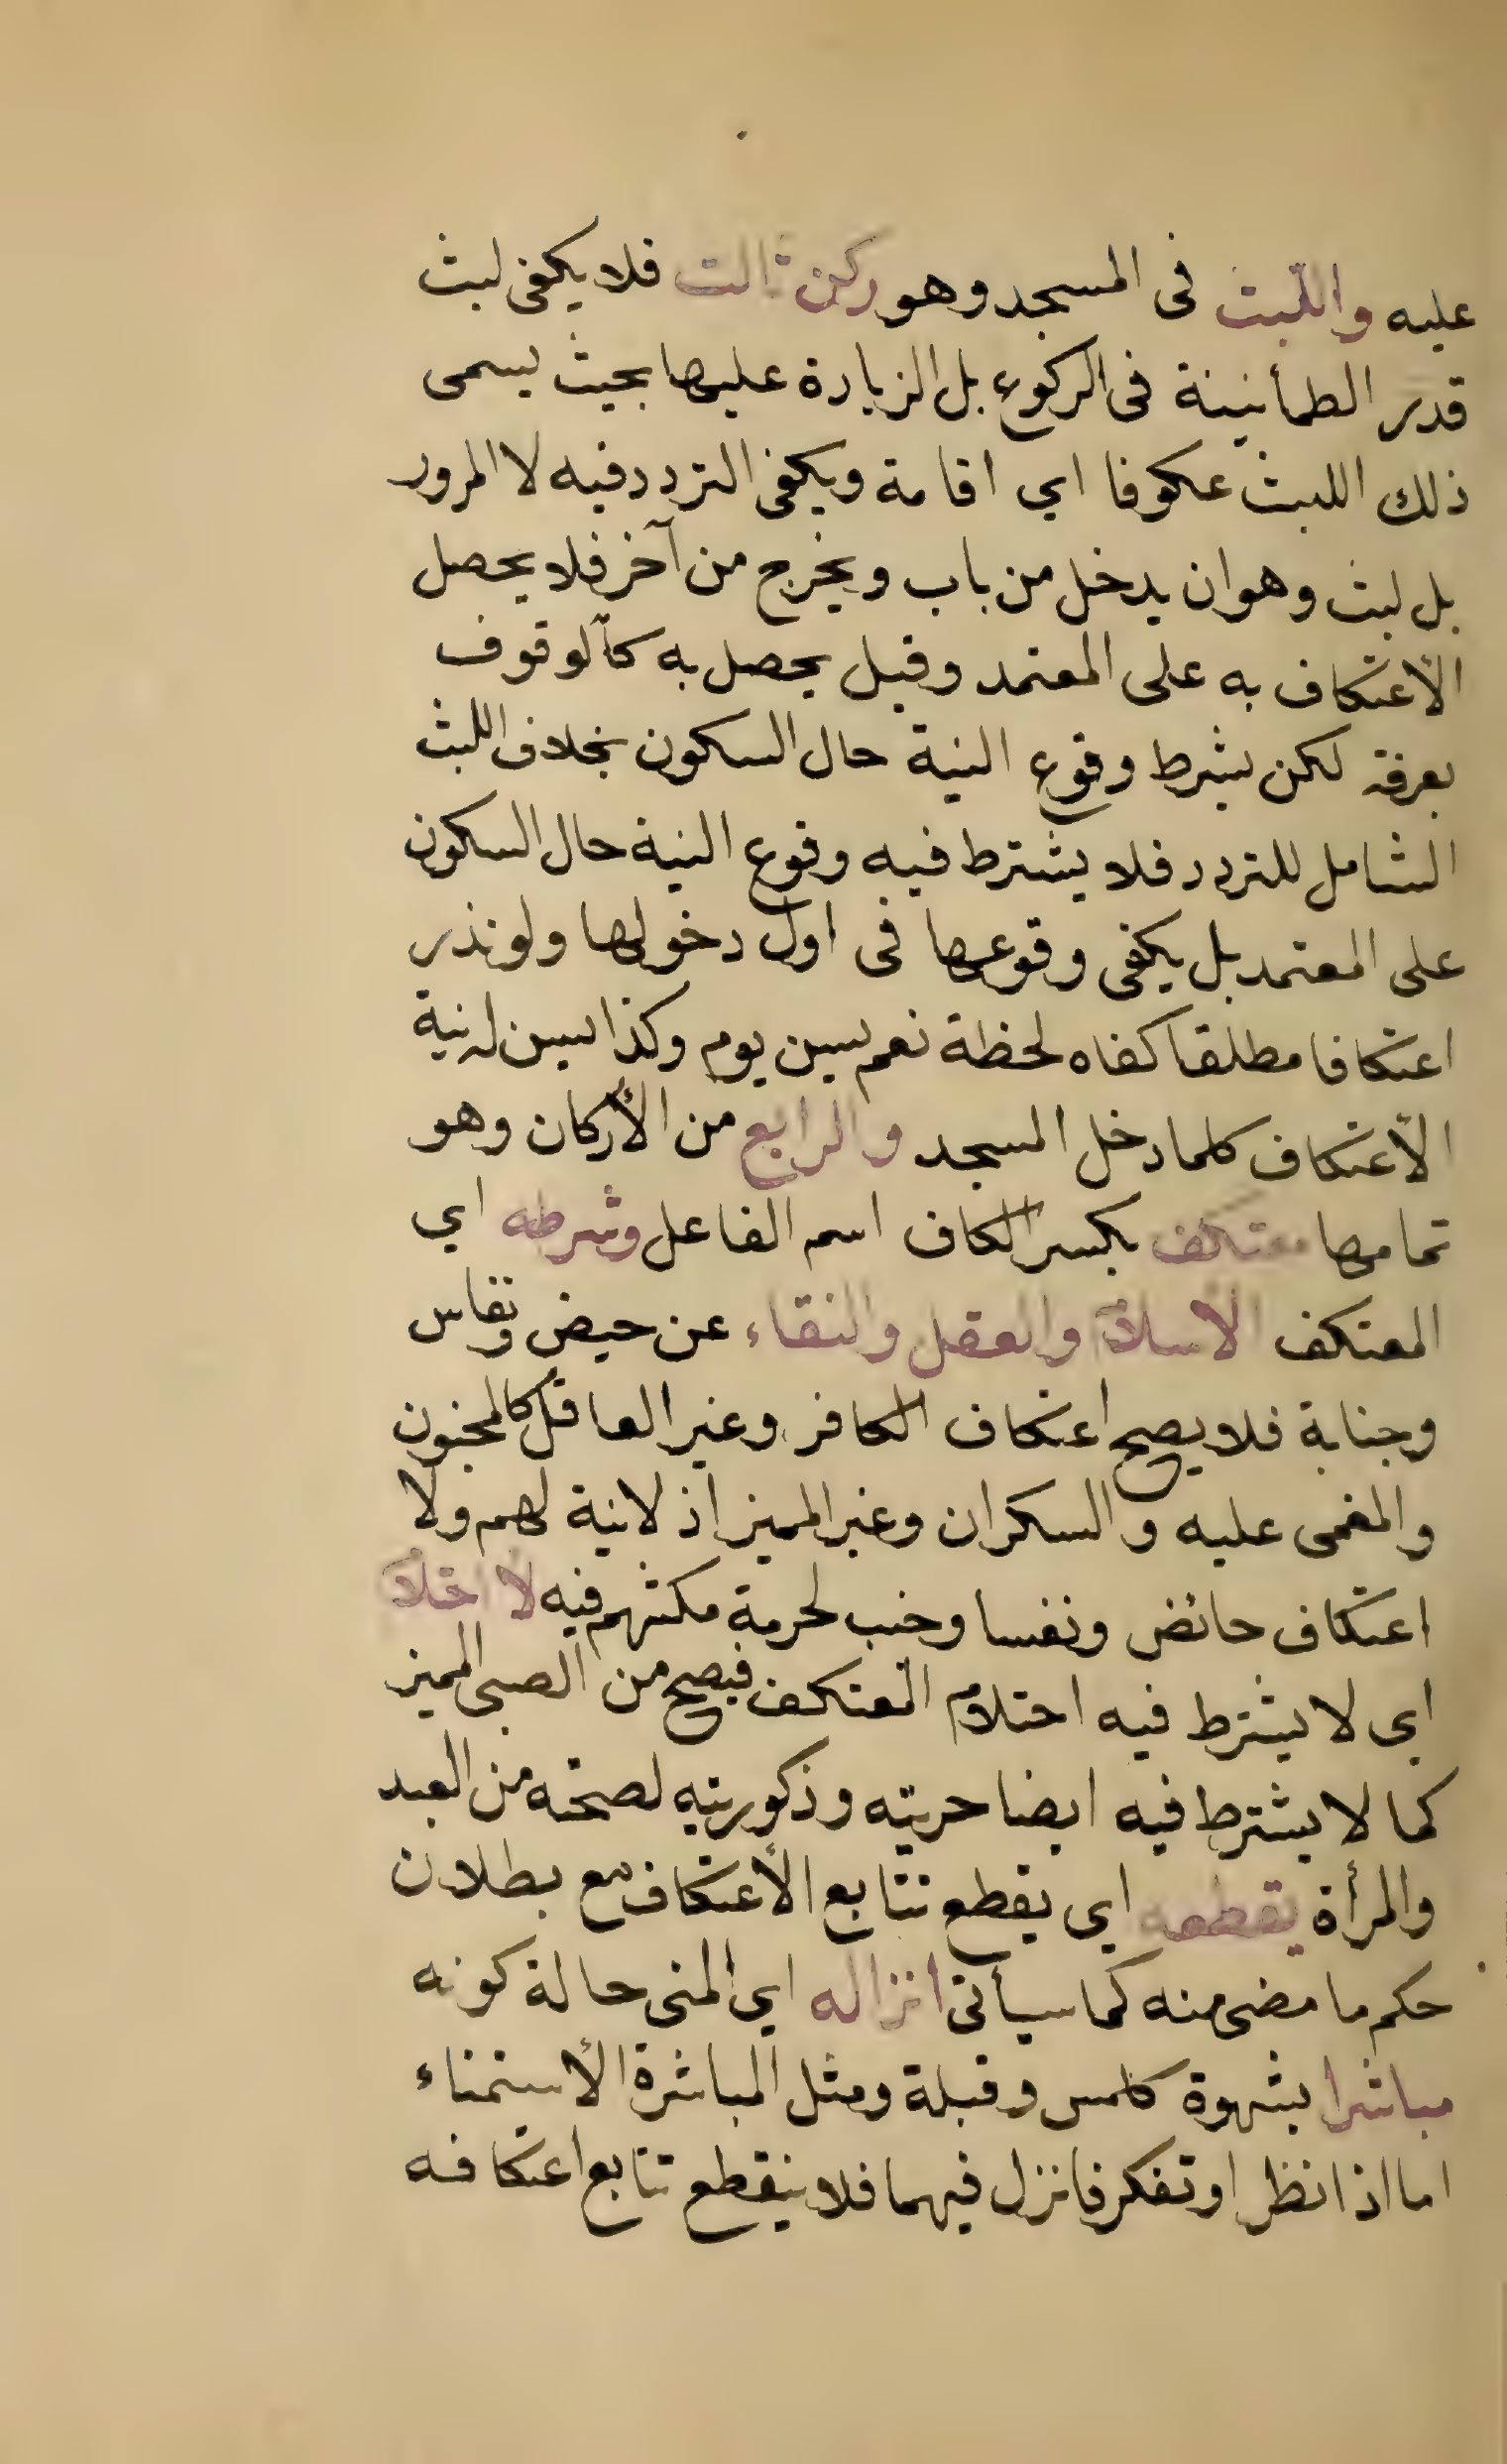 عليه واللبث فى المسجد وهو ركن ثالث فلا يكفى لبث
قدر الطمأنينة فى الركوع بل الزيادة عليها بحيث يسمى
ذلك اللبث عكوفا اي اقامة ويكفى التردد فيه لا المرور
بل لبث وهو ان يدخل من باب ويخرج من آخر فلا يحصل
الأعتكاف به على المعتمد وقيل يحصل به كالوقوف
بعرفة لكن بشرط وقوع النية حال السكون بخلاف اللبث
الشامل للتردد فلا يشترط فيه وقوع النية حال السكون
على المعتمد بل يكفى وقوعها فى اول دخولها ولو نذر
اعتكافا مطلقا كفاه لحظة نعم يسن يوم وكذا يسن له نية
الأعتكاف كلما دخل المسجد والرابع من الأركان وهو
تمامها معتكف بكسر الكاف اسم الفاعل وشرطه اي
المعتكف الأسلام والعقل والنقاء عن حيض ونفاس
وجنابة فلا يصح اعتكاف الكافر وغير العاقل كالمجنون
والمغمى عليه والسكران وغير المميز اذ لا نية لهم ولا
اعتكاف حائض ونفسا وجنب لحرمة مكثهم فيه لا احتلام
اي لا يشترط فيه احتلام المعتكف فيصح من الصبى المميز
كما لا يشترط فيه ايضا حريته وذكوريته لصحته من العبد
والمرأة يقطعه اي يقطع تتابع الأعتكاف مع بطلان
حكم ما مضى منه كما سيأتى انزاله اي المنى حالة كونه
مباشرا بشهوة كلمس وقبلة ومثل المباشرة الأستمناء
اما اذا نظر او تفكر فانزل فيهما فلا ينقطع تتابع اعتكافه